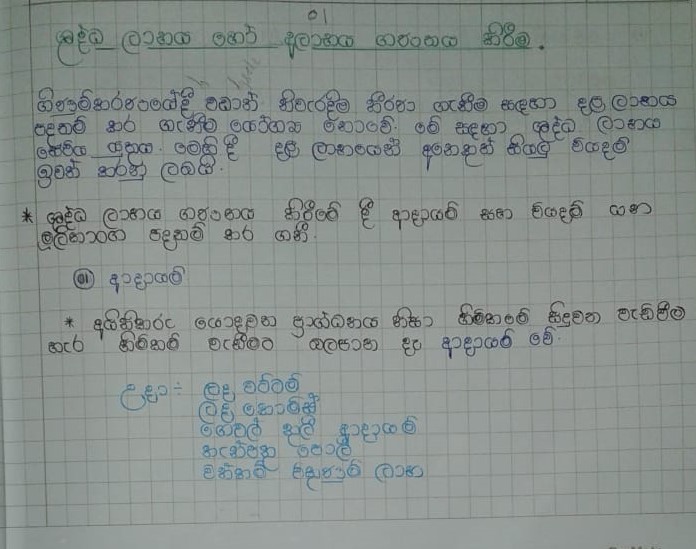 01
ශුද්ධ ලාභය හෝ අලාභය ගණනය කිරීම.
ගිණුම්කරණයේදී වඩාත් නිවැරදිව තීරණ ගැනීම සඳහා දළ ලාභය
පදනම් කර ගැනීම යෝග්‍ය නොවේ. මේ සඳහා ශුද්ධ ලාභය
සෙවිය යුතුය. මෙහි දී දළ ලාභයෙන් අනෙකුත් සියලු වියදම්
ඉවත් කරනු ලබයි.
* ශුද්ධ ලාභය ගණනය කිරීමේ දී ආදායම් සහ වියදම් යන
මූලිකාංග පදනම් කර ගනී.
01 ආදායම්
* අයිතිකරු යොදවන ප්‍රාග්ධනය නිසා හිමිකමේ සිදුවන වැඩිවීම
හැර හිමිකම් වැඩිවීමට බලපාන දෑ ආදායම් වේ.
උදා :- ලද වට්ටම්
ලද කොමිස්
ගෙවල් කුලී ආදායම්
තැන්පතු පොලී
වත්කම් විකුණුම් ලාභ